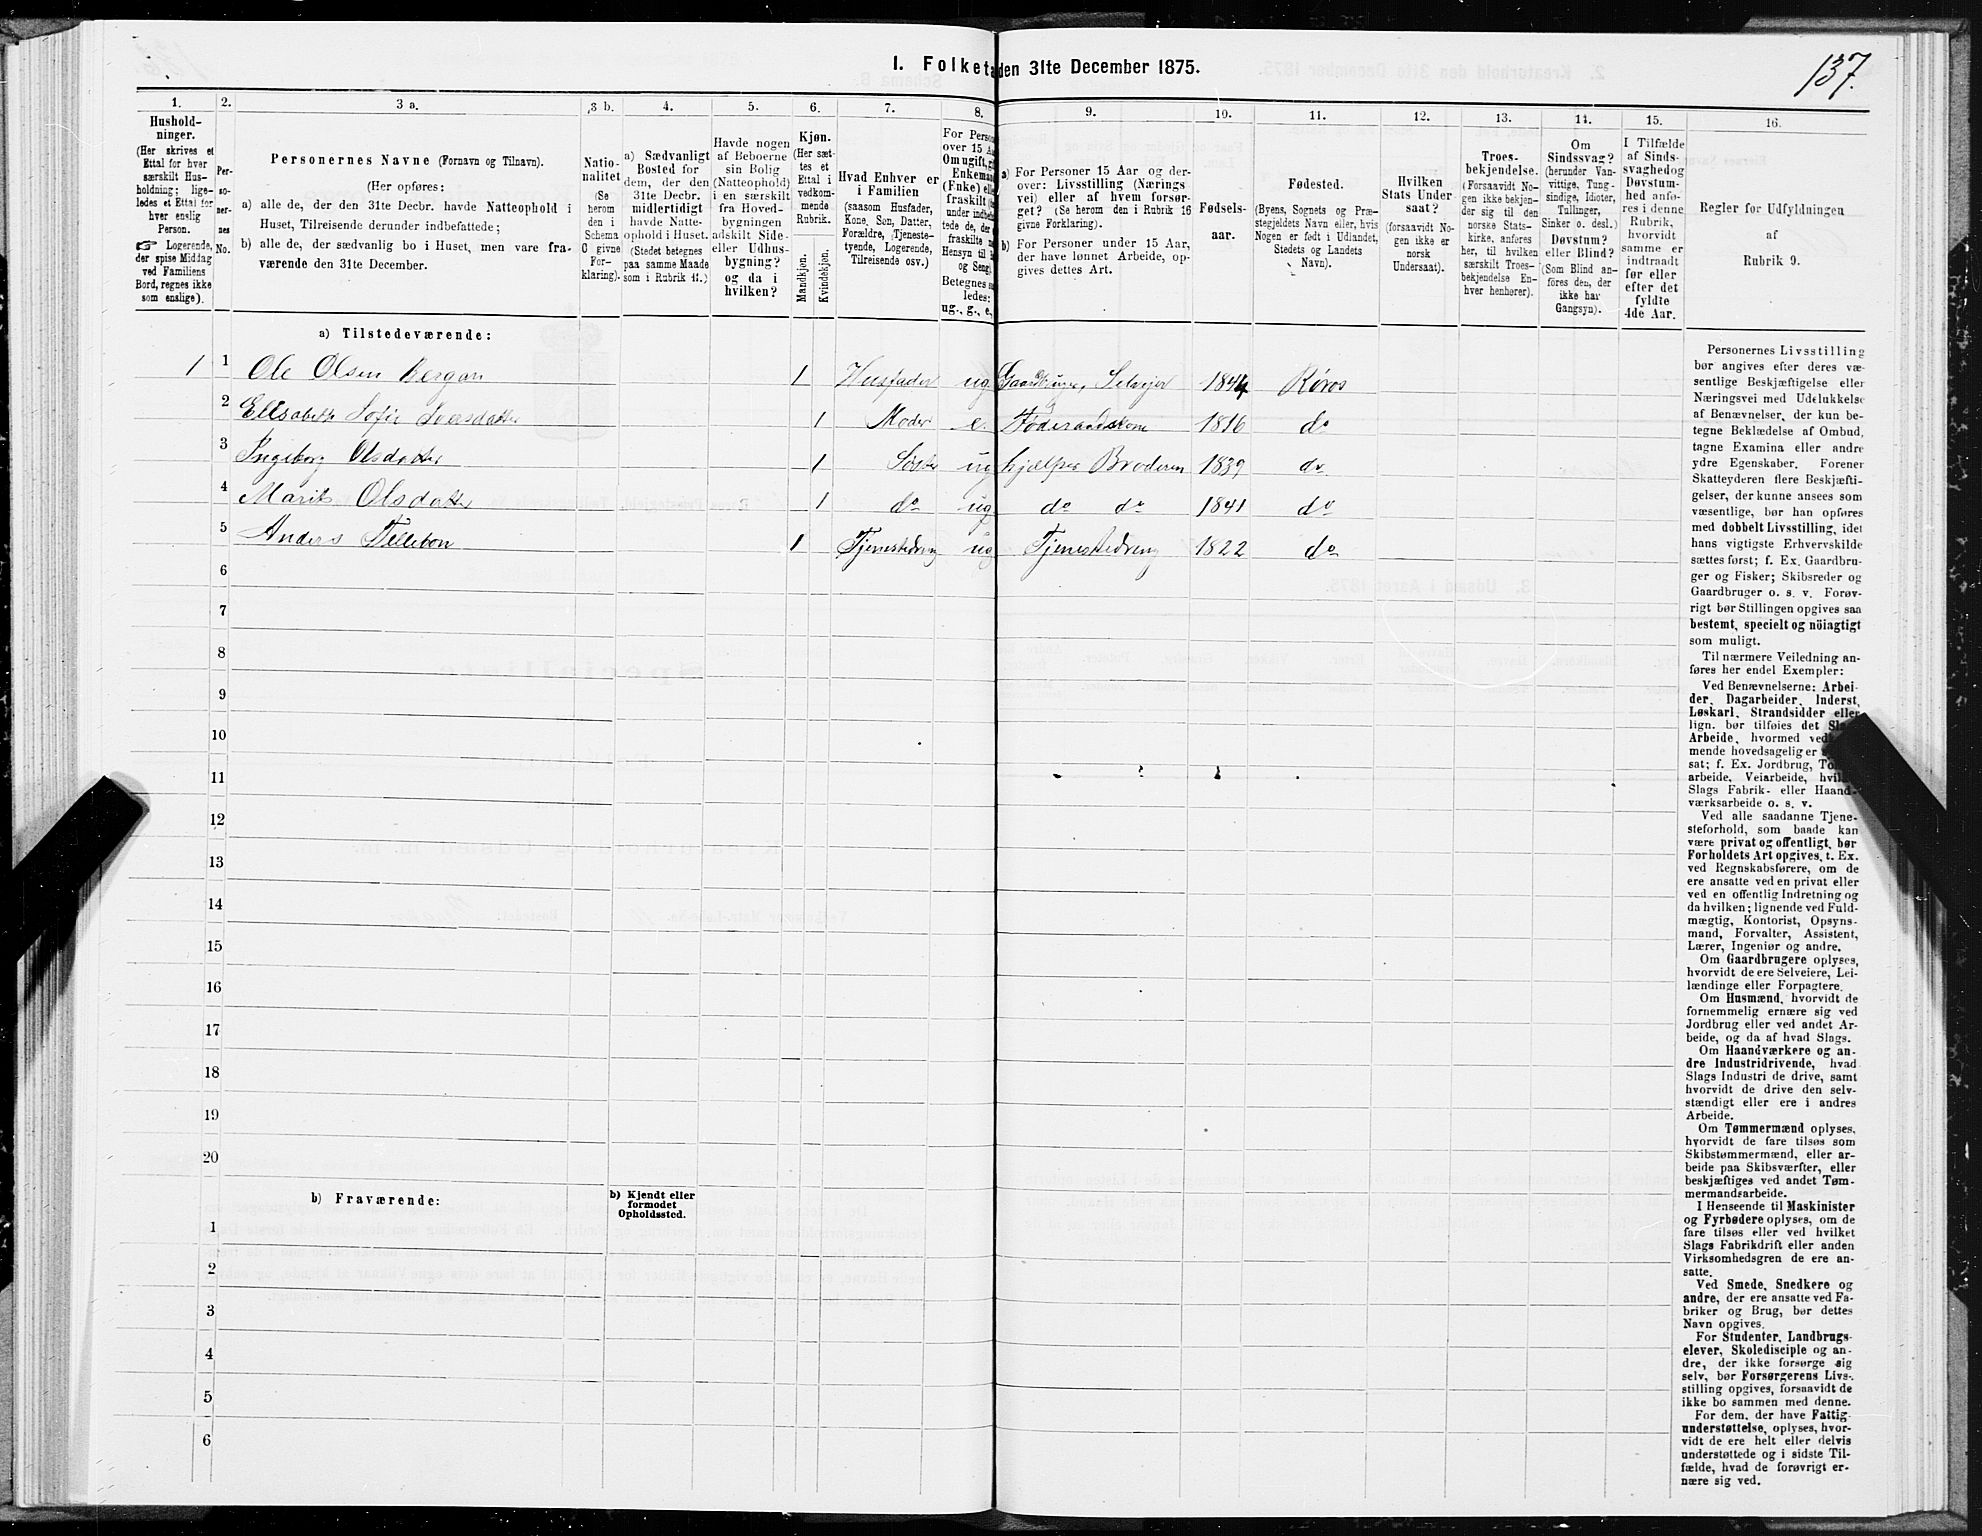 137.
I. Folketa den 31te December 1875.
1. 2. 3 a. 3 b. 4. 5. 6. 7. 8. 9. 10. 11. 12. 13. 14. 15. 16.
Hushold-
ninger.
(Her skrives et
Ettal for hver
særskilt Hus-
holdning; lige-
ledes et Ettal for
hver enslig
Person.
☞ Logerende,
der spise Middag
ved Familiens
Bord, regnes ikke
som enslige).
Per-
so-
ner-
nes
No.
Personernes Navne (Fornavn og Tilnavn).
(Her opføres:
a) alle de, der den 31te Decbr. havde Natteophold i
Huset, Tilreisende derunder indbefattede;
b) alle de, der sædvanlig bo i Huset, men vare fra-
værende den 31te December.
Natio-
nalitet
(Se
herom
den i
Schema
O givne
For-
klaring).
a) Sædvanligt
Bosted for
dem, der den
31te Decbr.
midlertidigt
havde Natte-
ophold i Huset.
(Stedet betegnes
paa samme Maade
som i Rubrik 11.)
Havde nogen
af Beboerne
sin Bolig
(Natteophold)
i en særskilt
fra Hoved-
bygningen
adskilt Side-
eller Udhus-
bygning?
og da i
hvilken?
Kjøn.
(Her sæt-
tes et
Ettal i
vedkom-
mende
Rubrik.
Mandkjøn.
Kvindekjøn.
Hvad Enhver er
i Familien
(saasom Husfader,
Kone, Søn, Datter,
Forældre, Tjeneste-
tyende, Logerende,
Tilreisende osv.)
For Person
over 15 Aa
Om ugift, gi
Enkeman
(Enke) elle
fraskilt (
under indbe
tede de, der
fraskilte
Hensyn til B
og Seng).
Betegnes sa
ledes:
ug., g., e.,
a) For Personer 15 Aar og der-
over: Livsstilling (Nærings
vei) eller af hvem forsør-
get? (Se herom den i Rubrik 16
givne Forklaring).
b) For Personer under 15 Aar,
der have lønnet Arbeide, op-
gives dettes Art.
Fødsels-
aar.
Fødested.
(Byens, Sognets og Præ-
stegjeldets Navn eller, hvis
Nogen er født i Udlandet,
Stedets og Landets
Navn).
Hvilken
Stats Under
saat?
(forsaavidt No-
gen ikke er
norsk
Undersaat).
Troes-
bekjendelse.
(Forsaavidt No-
gen ikke bekjen-
der sig til den
norske Stats-
kirke, anføres
her, til hvilken
særskilt Troes-
bekjendelse En-
hver henhører).
Om
Sindssvag?
(herunder Van-
vittige, Tung-
sindige, Idioter,
Tullinger,
Sinker o. desl.)
Døvstum?
eller Blind?
(Som Blind an-
føres den, der
ikke har
Gangsyn).
I Tilfælde
af Sinds-
svaghed og
Døvstum-
hed anfø-
res i denne
Rubrik,
hvorvidt
samme er
indtraadt
før eller
efter det
fyldte
4de Aar.
Regler for Udfyldningen
af
Rubrik 9.
a) Tilstedeværende:
1 1 Ole Olsen Bergan 1 Husfader ug Gaardbruger, Selveier 1844 Røros
2 Elisabeth Sofie Iversdatter 1 Moder e. Føderaadskone 1816 do
3 Ingeborg Olsdatter 1 Søster ug hjælper Broderen 1839 do
4 Marit Olsdatter 1 do ug do do 1841 do
5 Anders Tellebon 1 Tjenestedreng ug Tjenestedreng 1822 do
6
7
8
9
10
11
12
13
14
15
16
17
18
19
20
b) Fraværende:
b) Kjendt eller
formodet
Opholdssted.
1
2
3
4
5
6
Personernes Livsstilling
bør angives efter deres væ-
sentlige Beskjæftigelse eller
Næringsvei med Udelukkelse
af Benævnelser, der kun be-
tegne Beklædelse af Ombud,
tagne Examina eller andre
ydre Egenskaber. Forener
Skatteyderen flere Beskjæfti-
gelser, der kunne ansees som
væsentlige, bør han opføres
med dobbelt Livsstilling, idet
hans vigtigste Erhvervskilde
sættes først; f. Ex. Gaardbru-
ger og Fisker; Skibsreder og
Gaardbruger o. s. v. Forøv-
rigt bør Stillingen opgives saa
bestemt, specielt og nöiagtigt
som muligt.
Til nærmere Veiledning an-
føres her endel Exempler:
Ved Benævnelserne: Arbei-
der, Dagarbeider, Inderst,
Løskarl, Strandsidder eller
lign. bør tilføies det Slags
Arbeide, hvormed ved
mende hovedsagelig er
sat; f. Ex. Jordbrug, To
arbeide, Veiarbeide, hvil
Slags Fabrik- eller Haand-
værksarbeide o. s. v.
Ved alle saadanne Tjene-
steforhold, som baade kan
være privat og offentligt, bør
Forholdets Art opgives, t. Ex.
ved Regnskabsførere, om de
ere ansatte ved en privat eller
ved en offentlig Indretning og
da hvilken; lignende ved Fuld-
mægtig, Kontorist, Opsyns-
mand, Forvalter, Assistent,
Lærer, Ingeniør og andre.
Om Gaardbrugere oplyses,
hvorvidt de ere Selveiere, Lei-
lændinge eller Forpagtere.
Om Husmænd, hvorvidt de
fornemmelig ernære sig ved
Jordbrug eller ved andet Ar-
beide, og da af hvad Slags.
Om Haandværkere og an-
dre Industridrivende, hvad
Slags Industri de drive, samt
hvorvidt de drive den selv-
stændigt eller ere i andres
Arbeide.
Om Tømmermænd oplyses,
hvorvidt de fare tilsøs som
Skibstømmermænd, eller ar-
beide paa Skibsværfter, eller
beskjæftiges ved andet Tøm-
mermandsarbeide.
I Henseende til Maskinister
og Fyrbødere oplyses, om de
fare tilsøs eller ved hvilket
Slags Fabrikdrift eller anden
Virksomhedsgren de ere an-
satte.
Ved Smede, Snedkere og
andre, der ere ansatte ved Fa-
briker og Brug, bør dettes
Navn opgives.
For Studenter, Landbrugs-
elever, Skoledisciple og an-
dre, der ikke forsørge sig
selv, bør Forsørgerens Livs-
stilling opgives, forsaavidt de
ikke bo sammen med denne.
For dem, der have Fattig-
understøttelse, oplyses, hvor-
vidt de ere helt eller delvis
understøttede og i sidste Til-
fælde, hvad de forøvrigt er-
nære sig ved.